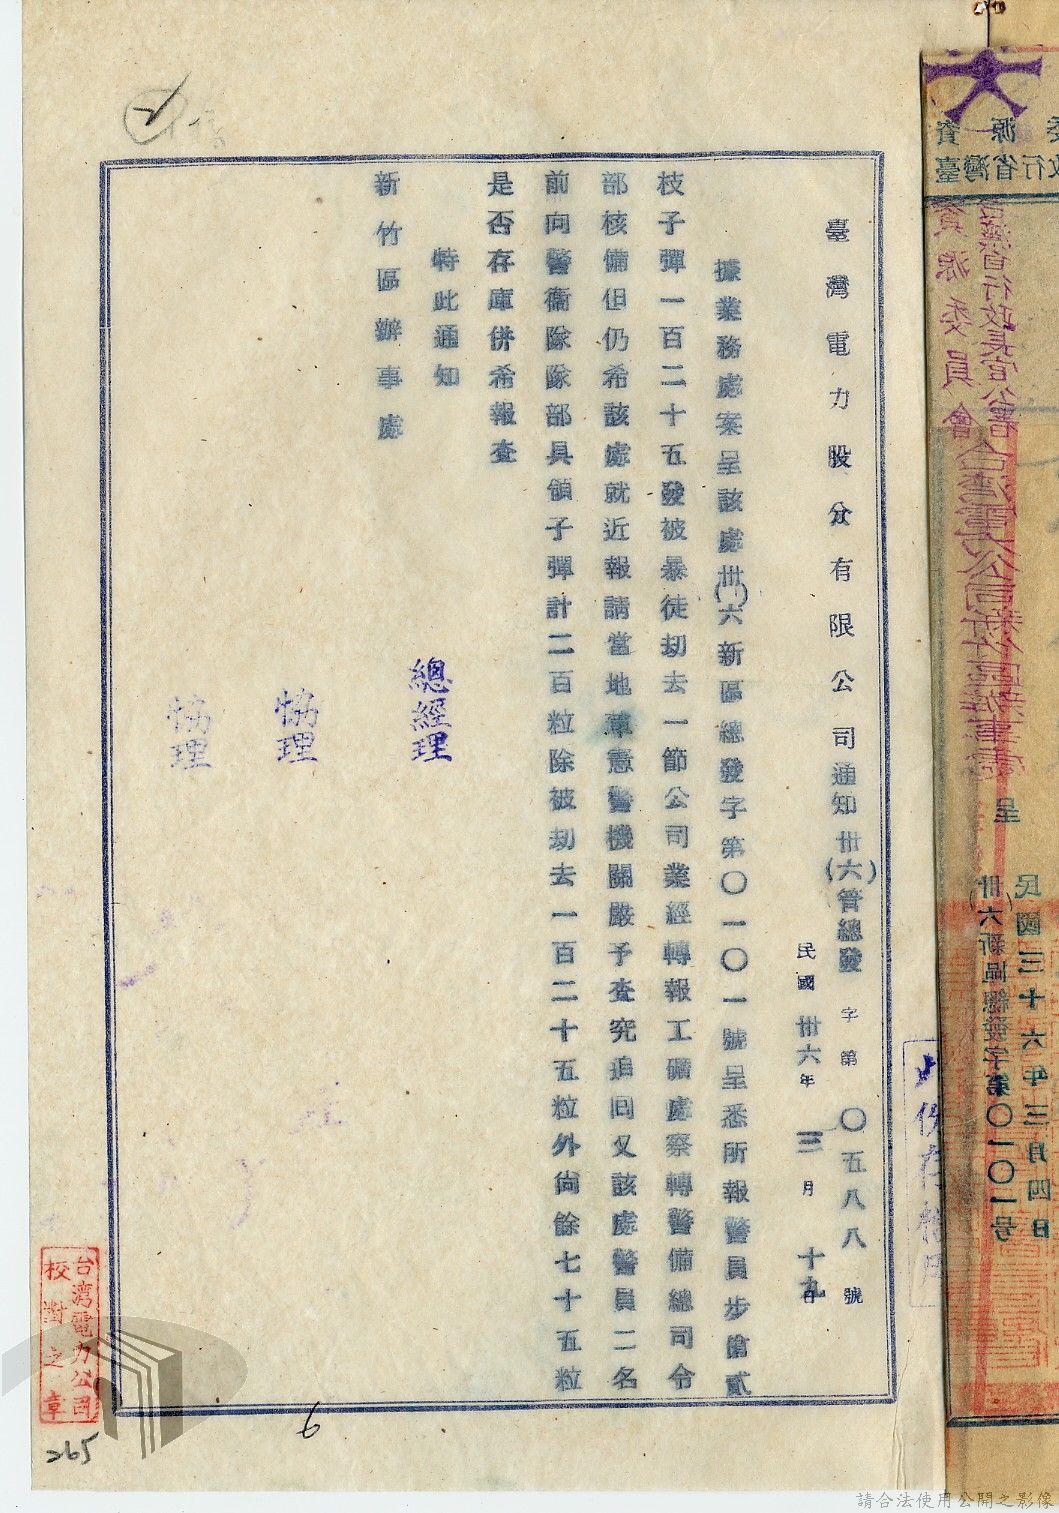 臺灣電力股份有限公司通知 卅(六)管總發字第〇五八八號
民國卅六年三月十九日
據業務處案呈該處卅(六)新區總發字第〇一〇一號呈悉所報警員步槍貳
枝子彈一百二十五發被暴徒刼去一節公司業經轉報工礦處察轉警備總司令
部核備但仍希該處就近報請當地軍憲警機關嚴予查究追回又該處警員二名
前向警衞隊隊部具領子彈計二百粒除被刼去一百二十五粒外尙餘七十五粒
是否存庫併希報查
特此通知
新竹區辦事處
總經理
協理
協理
台湾電力公司
校對之章
265
6
民國三十六年三月四日
卅六新區總發字第〇一〇一号
呈
台灣省行政長官公署
資源委員會
台灣電力公司新竹區辦事處
請合法使用公開之影像